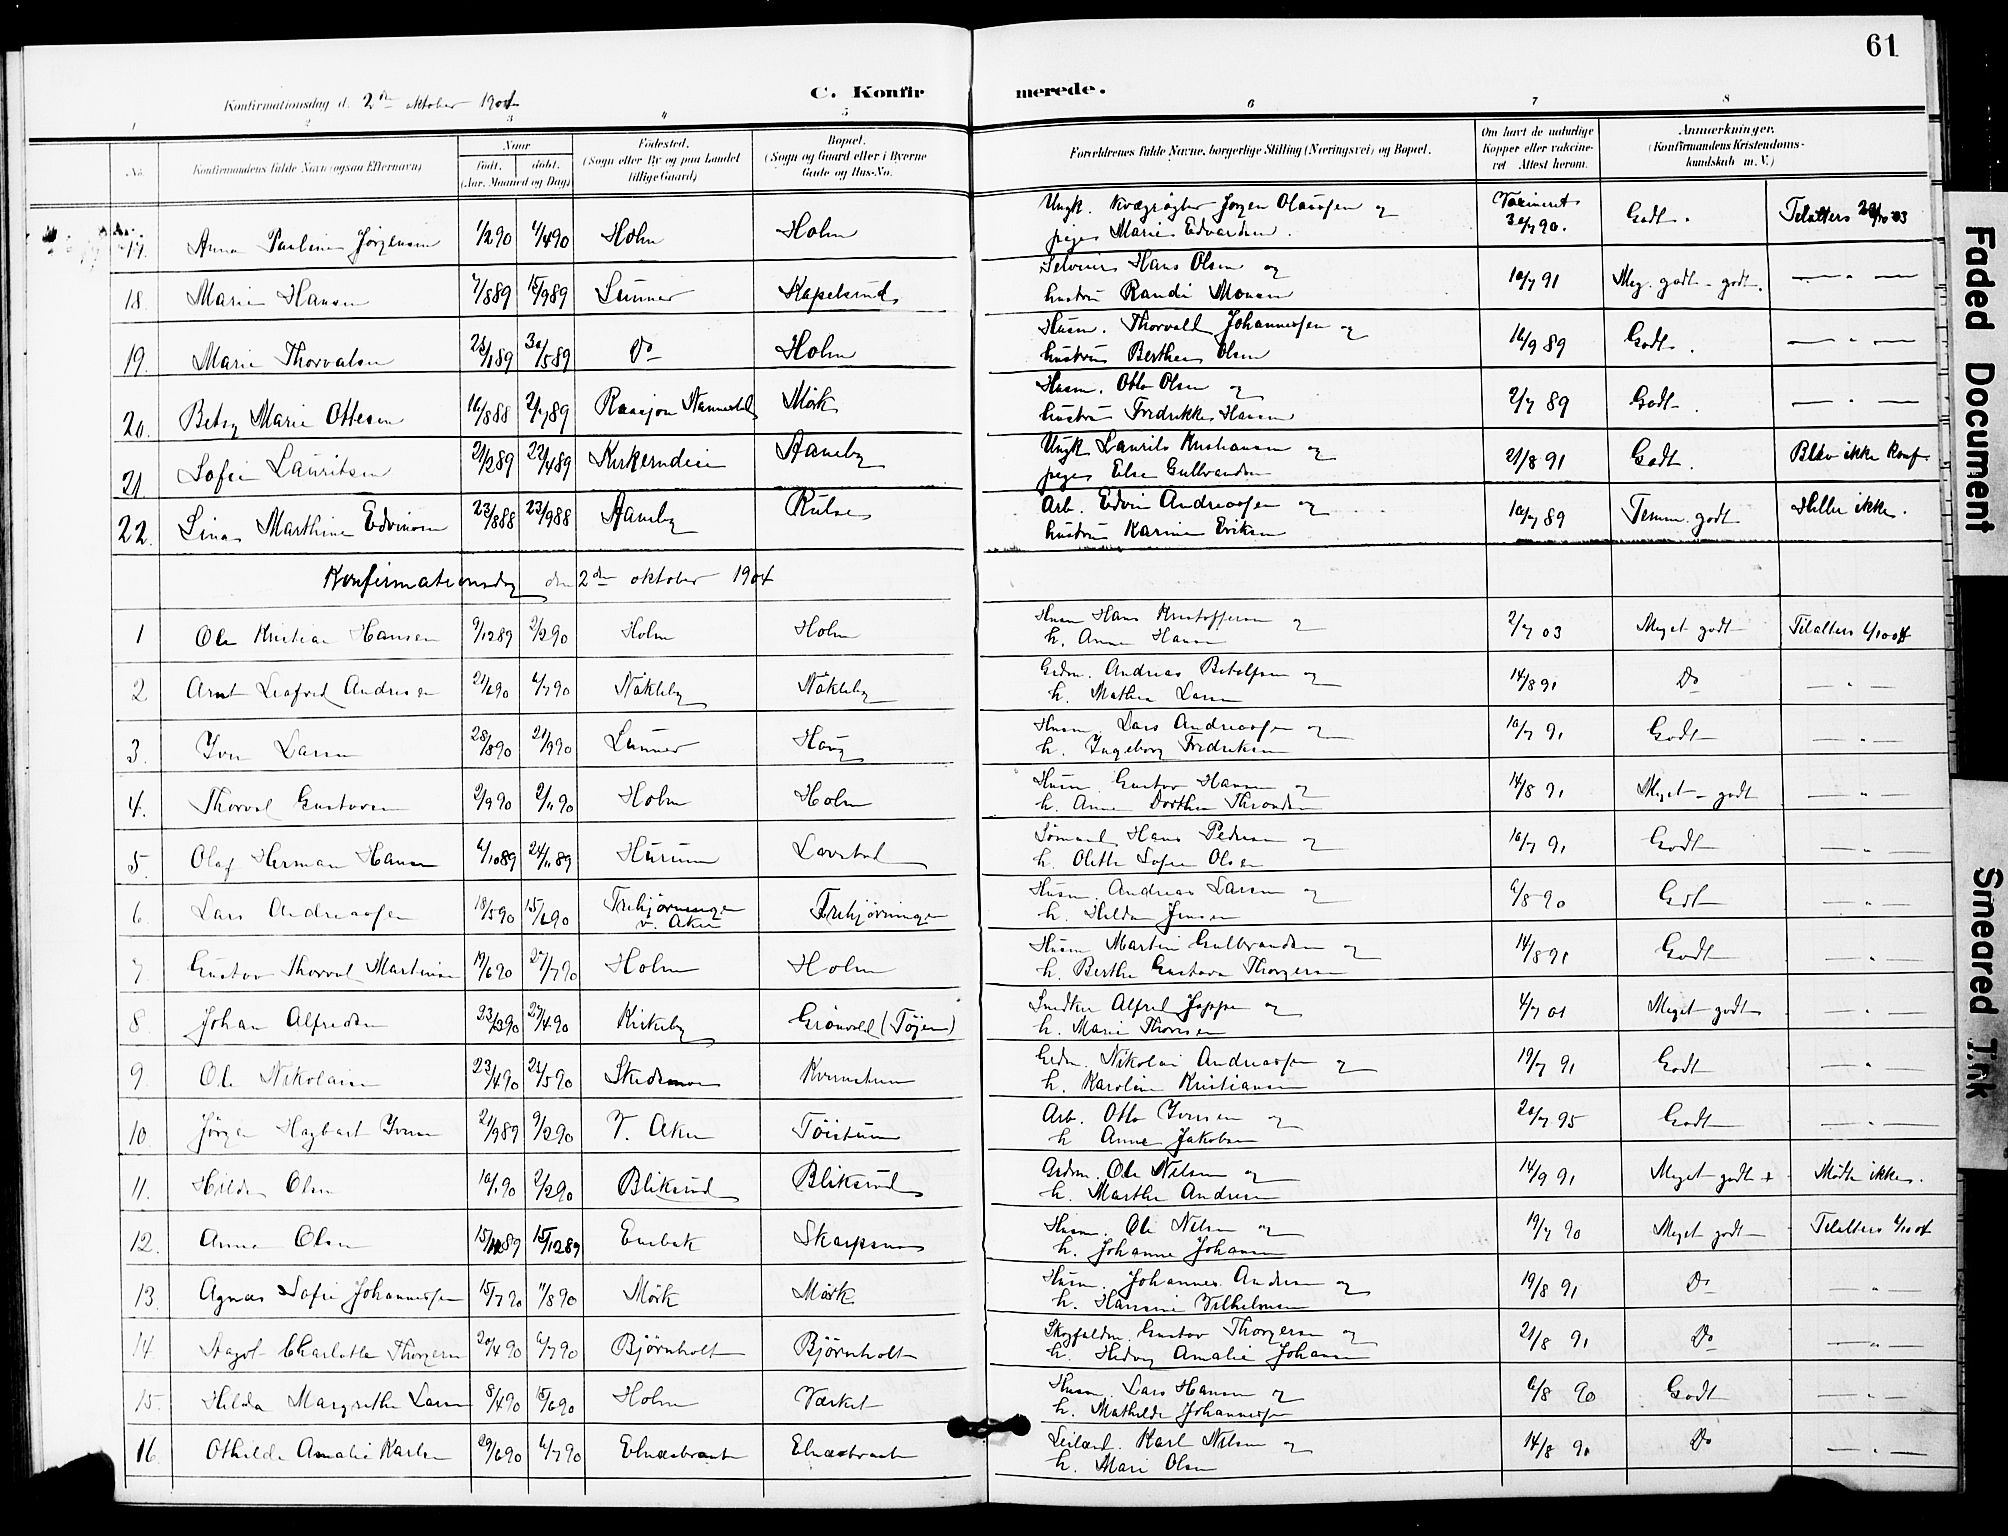 61
Konfirmationsdag d. 2den oktober 1904
C. Konfirmerede.
1 2 3 4 5 6 7 8
No. Konfirmandens fulde Navn (ogsaa Efternavn) Naar født. døbt. (Aar, Maaned og Dag) Fødested. (Sogn eller By og paa Landet tillige Gaard) Bopæl. (Sogn og Gaard eller i Byerne Gade og Hus-No. Forældrenes fulde Navne, borgerlige Stilling (Næringsvei) og Bopæl. Om havt de naturlige Kopper eller vaccineret Attest herom. Anmærkninger. (Konfirmandens Kristendomskundskab m. V.)
17. Anna Pauline Jørgensen 1/2 90 4/4 90 Holm Holm Ungk. Jørgen Olaussen og pige Marie Edvardsen. Vaxineret 90. Godt. Tilalters 03
18. Marie Hansen 7/8 89 15/9 89 Lunner Kapelsrud Selveier Hans Olsen og hustru Randi Monsen 10/7 91 Meg. godt - godt. — " —
19. Marie Thorvalsen 89 30/5 89 Do Holm Husm. Thorvald Johannessen og hustru Berthea Olsen 16/9 89 Godt. — " —
20. Betsy Marie Ottesen 16/8 88 2/7 89 Raasjøn Nannestad Mørk Husm. Otto Olsen og hustru Fredrikke Hansen 2/7 89 Godt. — " —
21 Sofie Lauritsen 21/2 89 22/4 89 Kirkerudeie Aaneby Ungk Laurits Kristiansen og pige Else Gulbrandsen 21/8 91 Godt. Blev ikke konf.
22. Lina Marthine Edvinsen 23/8 88 23/9 88 Aaneby Arb. Edvin Andreassen og hustru Karine Eriksen 10/7 89 Temm. godt Heller ikke.
Konfirmationsdag den 2den oktober 1904
1 Ole Kristian Hansen 9/12 89 2/2 90 Holm Holm Husm Hans Kristoffersen og h. Anne Hansen 2/7 03 Meget godt Tilalters 04
2 Arnt Leafred Andresen 21/6 90 6/7 90 Nökleby Nökleby Grdm. Andreas Betolfsen og h. Mathea Larsen 14/8 91 Do — " —
3. Iver Larsen 28/8 90 21/9 90 Lunner Haug Husm Lars Andreassen og h. Ingeborg Fredriksen 10/7 91 Godt — " —
4. Thorval Gustavsen 2/9 90 2/11 90 Holm Holm Husm. Gustav Hansen og h. Anne Dorthea Throndsen 14/8 91 Meget - godt — " —
5. Olaf Herman Hansen 6/10 89 24/11 89 Hurum Lovstad Sømand Hans Pedersen og h. Olette Sofie Olsen 10/7 91 Godt — " —
6. Lars Andreassen 18/5 90 15/6 90 Trehjørningen v. Aker Trehjørningen Husm. Andreas Larsen og h. Hilda Jensen 6/8 90 Godt — " —
7. Gustav Thorval Martinsen 19/6 90 27/7 90 Holm Holm Husm Martin Gulbrandsen og h. Berthe Gustava Thorgersen 14/8 91 Godt — " —
8 Johan Alfredsen 23/3 90 27/4 90 Kirkeby Grønvold (Tøien) Snedker Alfred Joppe og h. Marie Thoresen 4/7 01 Meget godt — " —
9. Ole Nikolaisen 23/4 90 5 90 Skedsmo Kvernstuen Grdm. Nikolai Andreassen og h. Karoline Kristiansen 19/7 91 Godt — " —
10. Jørgen Hagbart Iversen 21/9 89 9/2 90 V. Aker Töistuen Arb. Otto Iversen og h Anne Jakobsen 20/7 95 Godt — " —
11. Hilda Olsen 10/1 90 2/2 90 Bliksrud Bliksrud Grdm. Ole Nilsen og h. Marthe Andersen 14/9 91 Meget godt + Mødte ikke.
12. Anna Olsen 15/11 89 15/12 89 Enebak Skarpsno Husm. Ole Nilsen og h. Johanne Johansen 19/7 90 Meget godt Tilalters 04
13. Agnes Sofie Johannessen 15/7 90 8 90 Mörk Mörk Husm. Johannes Andersen og h. Hansine Vilhelmsen 19/8 91 Do — " —
14 Aagot Charlotte Thorgersen 20/4 90 6/7 90 Bjørnholt Bjørnholt Skogfuldm. Gustav Thorgersen og h. Hedvig Amalie Johansen 21/8 91 Do — " —
15. Hilda Margrethe Larsen 8/4 90 15/6 90 Holm Værket Husm. Lars Hansen og h. Mathilde Johannessen 6/8 90 Godt — " —
16 Othilde Amalie Karlsen 29/6 90 6/7 90 Elnesbraaten Elnesbraaten Leilænd. Karl Nilsen og h. Mari Olsen 14/8 90 Do — " —
Faded Document
Smeared Ink